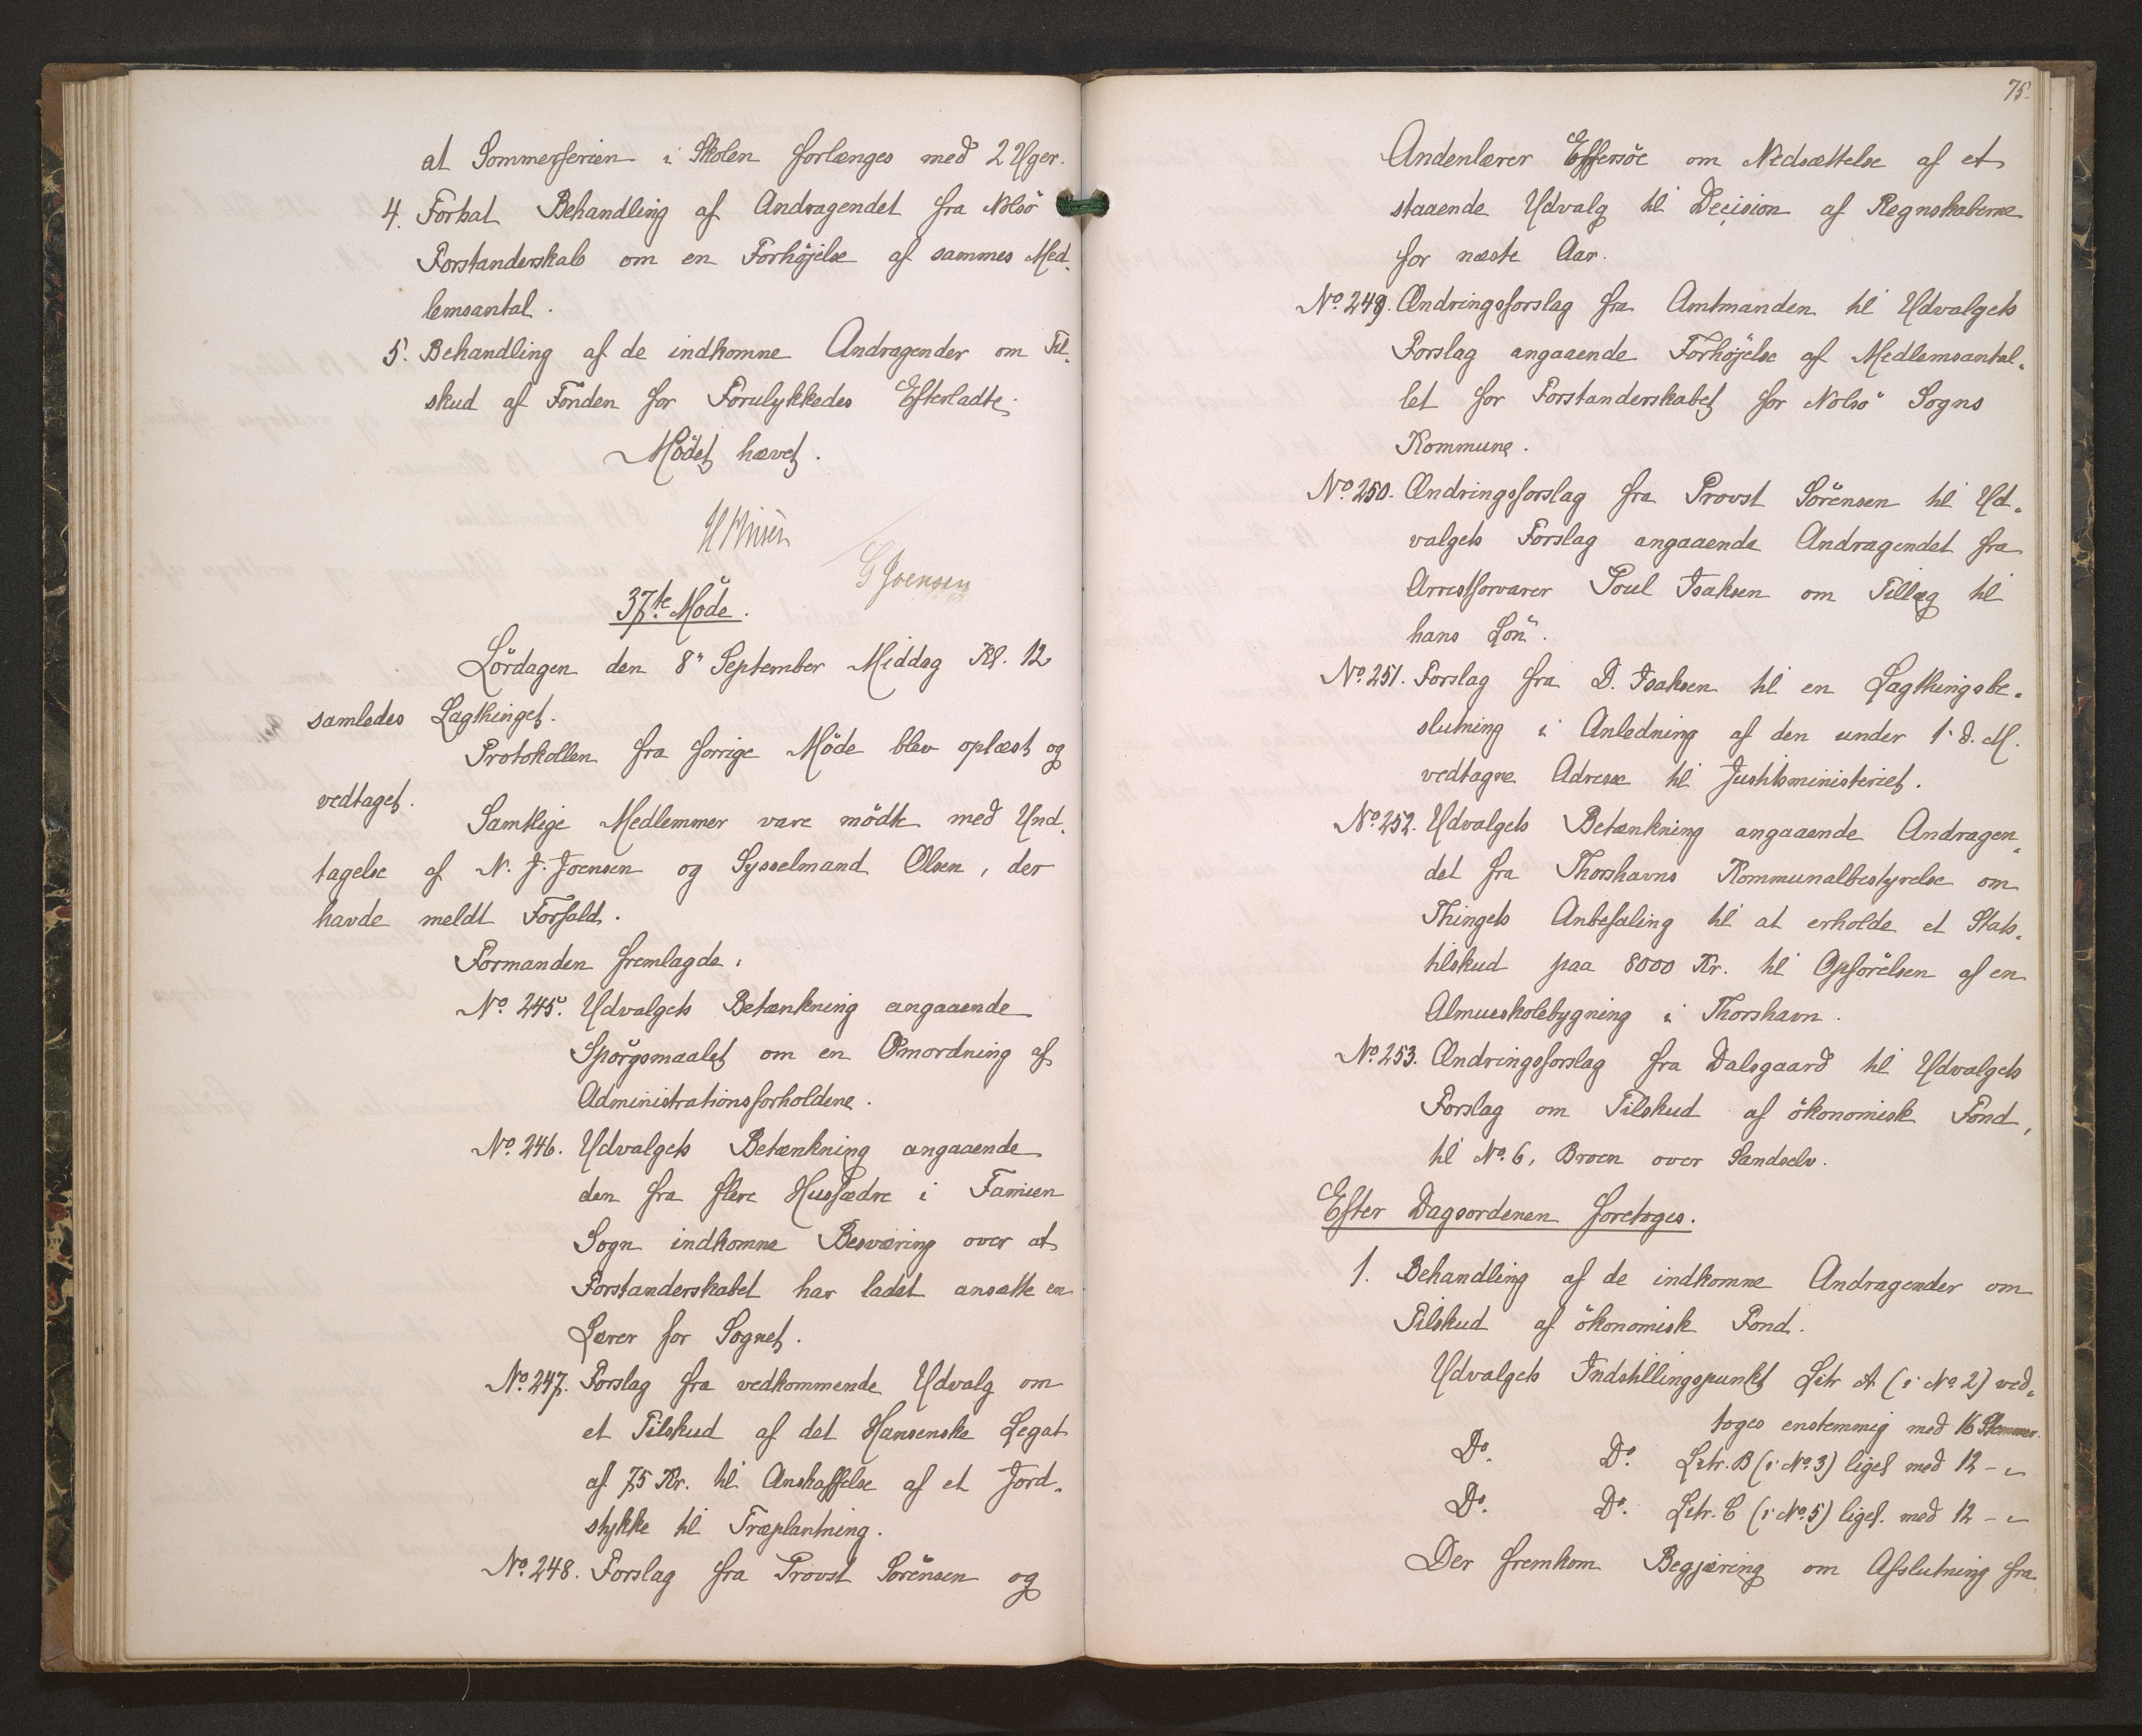 at Sommerferien i Skolen forlænges med 2 Uger.
4. Fortsat Behandling af Andragendet fra Nolsö
Forstanderskab om en Forhöjelse af sammes Med-
lemsantal.
5. Behandling af de indkomne Andragender om Til-
skud af Fonden for Forulykkedes Efterladte.
Mödet hævet.
G Joensen
37te Möde.
Lördagen den 8" September Middag Kl. 12
samledes Lagthinget.
Protokollen fra forrige Möde blev oplæst og
vedtaget.
Samtlige Medlemmer vare mödte med Und-
tagelse af N. J. Joensen og Sysselmand Olsen, der
havde meldt Forfald.
Formanden fremlagde:
No. 245. Udvalgets Betænkning angaaende
Spörgsmaalet om en Omordning af
Administrationsforholdene.
No. 246. Udvalgets Betænkning angaaende
den fra flere Husfædre i Famien
Sogn indkomne Besværing over at
Forstanderskabet har ladet ansætte en
Lærer for Sognet.
No. 247. Forslag fra vedkommende Udvalg om
et Tilskud af det Hansenske Legat
af 75 Kr. til Anskaffelse af et Jord-
stykke til Træplantning.
No. 248. Forslag fra Provst Sörensen og
75.
Andenlærer Effersöe om Nedsættelse af et
staaende Udvalg til Decision af Regnskaberne
for næste Aar.
No. 249. Ændringsforslag fra Amtmanden til Udvalgets
Forslag angaaende Forhöjelse af Medlemsantal-
let for Forstanderskabet for Nolsö Sogns
Kommune.
No. 250. Ændringsforslag fra Provst Sörensen til Ud-
valgets Forslag angaaende Andragendet fra
Arrestforvarer Poul Isaksen om Tillæg til
hans Lön.
No. 251. Forslag fra D. Isaksen til en Lagthingsbe-
slutning i Anledning af den under 1. d. M.
vedtagne Adresse til Justitsministeriet.
No. 252. Udvalgets Betænkning angaaende Andragen-
det fra Thorshavns Kommunalbestyrelse om
Thingets Anbefaling til at erholde et Stats-
tilskud paa 8000 Kr. til Opförelsen af en
Almueskolebygning i Thorshavn.
No. 253. Ændringsforslag fra Dalsgaard til Udvalgets
Forslag om Tilskud af ökonomisk Fond,
til No. 6, Broen over Sandselv.
Efter Dagsordenen foretoges.
1. Behandling af de indkomne Andragender om
Tilskud af ökonomisk Fond.
Udvalgets Indstillingspunkt Litr A (i No. 2) ved-
toges enstemmig med 16 Stemmer.
Do. Do. Litr. B (i No. 3) ligel. med 12 - "
Do. Do. Litr. C (i No. 5) ligel. med 12 - "
Der fremkom Begjæring om Afslutning fra